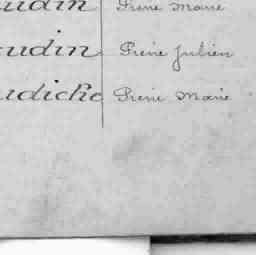 udin Pierre Marie
udin Pierre Julien
udicho Pierre Marie